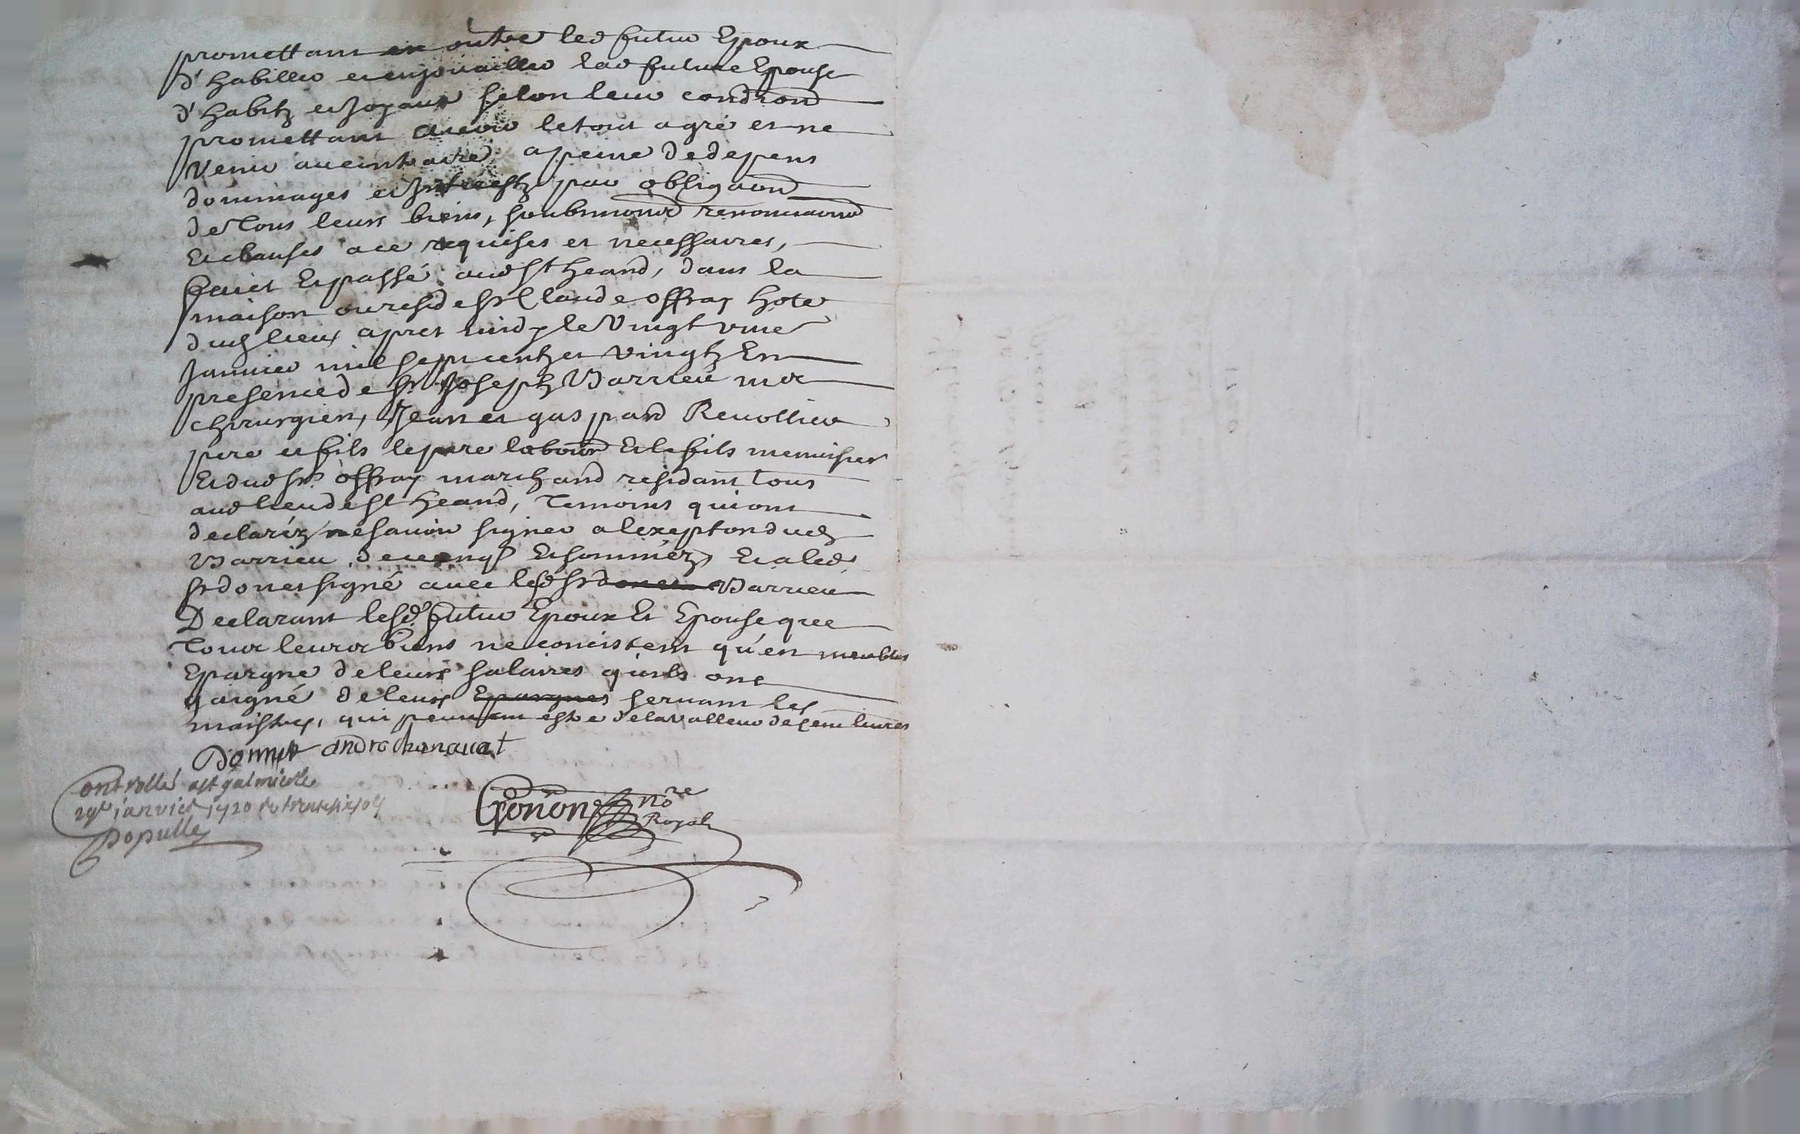 promettant en outre led futur Epoux
d'habiller et enjouailler lad future Epouse
d'habitz et Joyaux selon leur condi͠on
promettant avoir le tout agré et ne
venir au contraire, a peine de depens
dommages et Interestz par obliga͠on
de Tous leurs biens, soubmions renonciaons
et clauses a ce requises et necessaires,
faict et passé aud St heand, dans la
maison ou reside sr Claude offray hote
dud lieu, apres midy le Vingt une
Janvier mil sept centz et vingtz En
presence de sr Joseph Varrieu me
chirurgien, Jean et gaspard Revollier
pere et fils le pere labour et le fils menuisier
et dud sr offray marchand residant tous
aud lieu de St heand, Temoins qui ont
declaréz ne savoir signer a l'exeption dud
Varrieu de ce enq et sommez Et a led
sr donet signé avec led sr Varrieu
Declarant lesd futur Epoux Et Epouse que
Tous leurs biens ne concistent qu'en meubles
Epargne de leurs salaires quils ont
gaigné de leurs Epargnes servant les
maistres, qui peuvent estre de la valleur de cent livres
Donnet andra chanavat
Controllé a St galmier le
29e janvier 1720
Populle
Gonon No.re
Royal